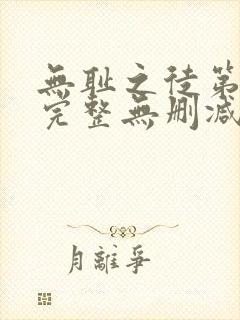 無耻之徒第
完整無删減
月離爭